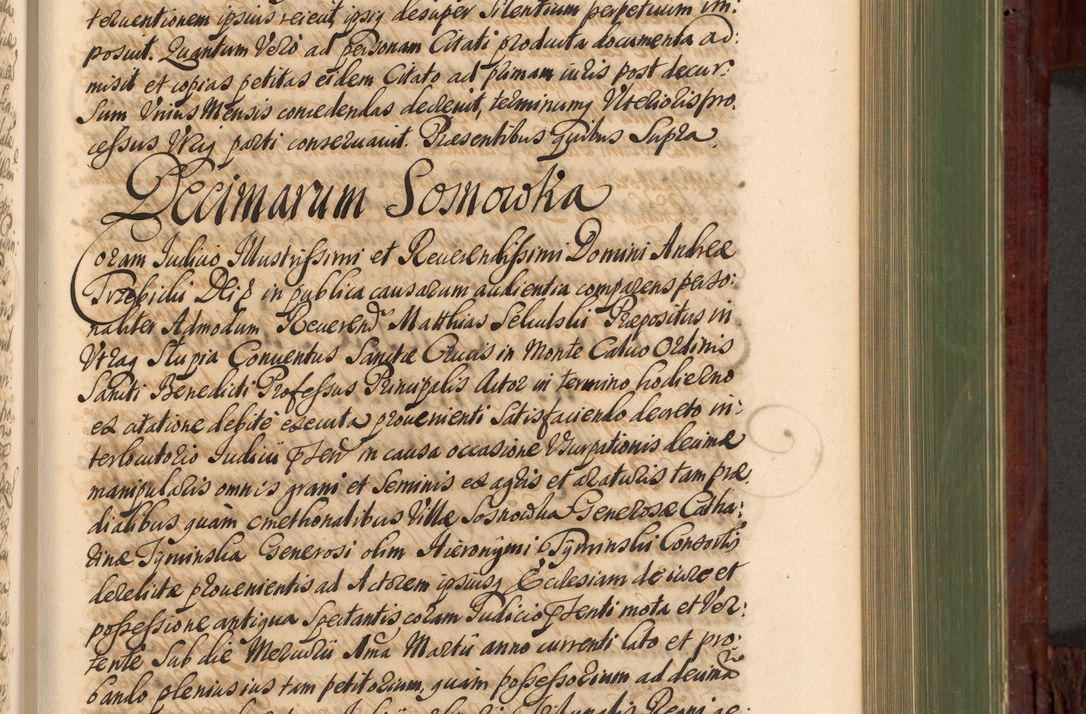 teruentionem ipsius reiecit ipsiq desuper Silentium perpetuum im:
posuit. Quantum Vero ad personam Citati producta documenta ad:
misit et copias petitas eidem Citato ad primam iuris post decur:
sum Vnius Mensis concedendas decreuit, terminumq Vlterioris pro
cessus Vtriq parti conseruauit. Præsentibus quibus Supra
Decimarum Sosnowka
Coram Iudicio Illustrissimi et Reuerendissimi Domini Andreæ
in publica causarum audientia comparens perso:
naliter Admodum Reuerend Matthias Præpositus in
Vtraq Slupia Conuentus Sanctæ Crucis in Monte Caluo Ordinis
Sancti Benedicti Professus Principalis Actor in termino hodierno
ex citatione debite executa prouenienti Satisfaciendo decreto in:
terlocutorio Iudicii in causa occasione Vsurpationis decimæ
manipularis omnis grani et Seminis ex agris et araturis tam præ
dialibus quam cmethonalibus Villæ Sosnowka Generosæ Catha:
rinæ Tyminska Generosi olim Hieronymi Tyminski Consortis
derelictæ prouenientis ad Actorem ipsiusq Ecclesiam de iure et
possessione antiqua Spectantis coram Iudicio mota et Ver:
tente Sub die Mercurii Martii anno currenti lato et pro:
bando plenius ius tam petitorium, quam possessorium ad decima